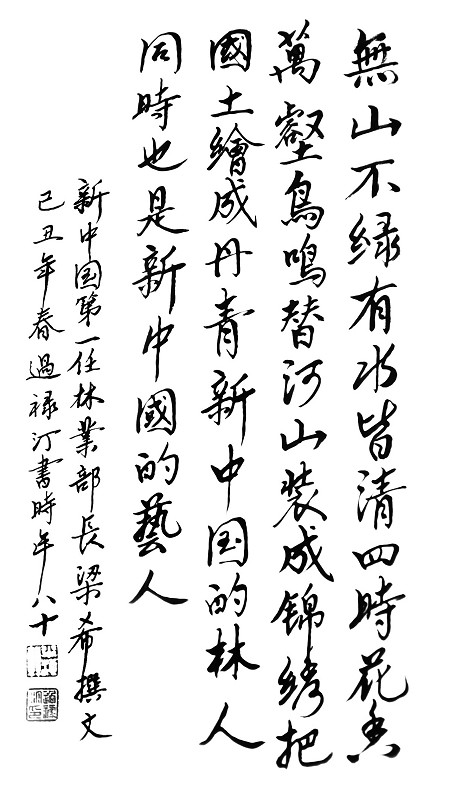 無山不緑有水皆清四時花香
萬壑鳥鳴替河山装成錦绣把
國土繪成丹青新中国的林人
同時也是新中國的藝人
新中国第一任林業部長梁希撰文
己丑年春過禄汀書時年八十